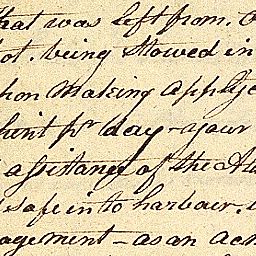 that was left from.
ot. being Stowed in
hon Making apply
pint pr day - your
assistance of the
safe into harbour.
agement - as an ac